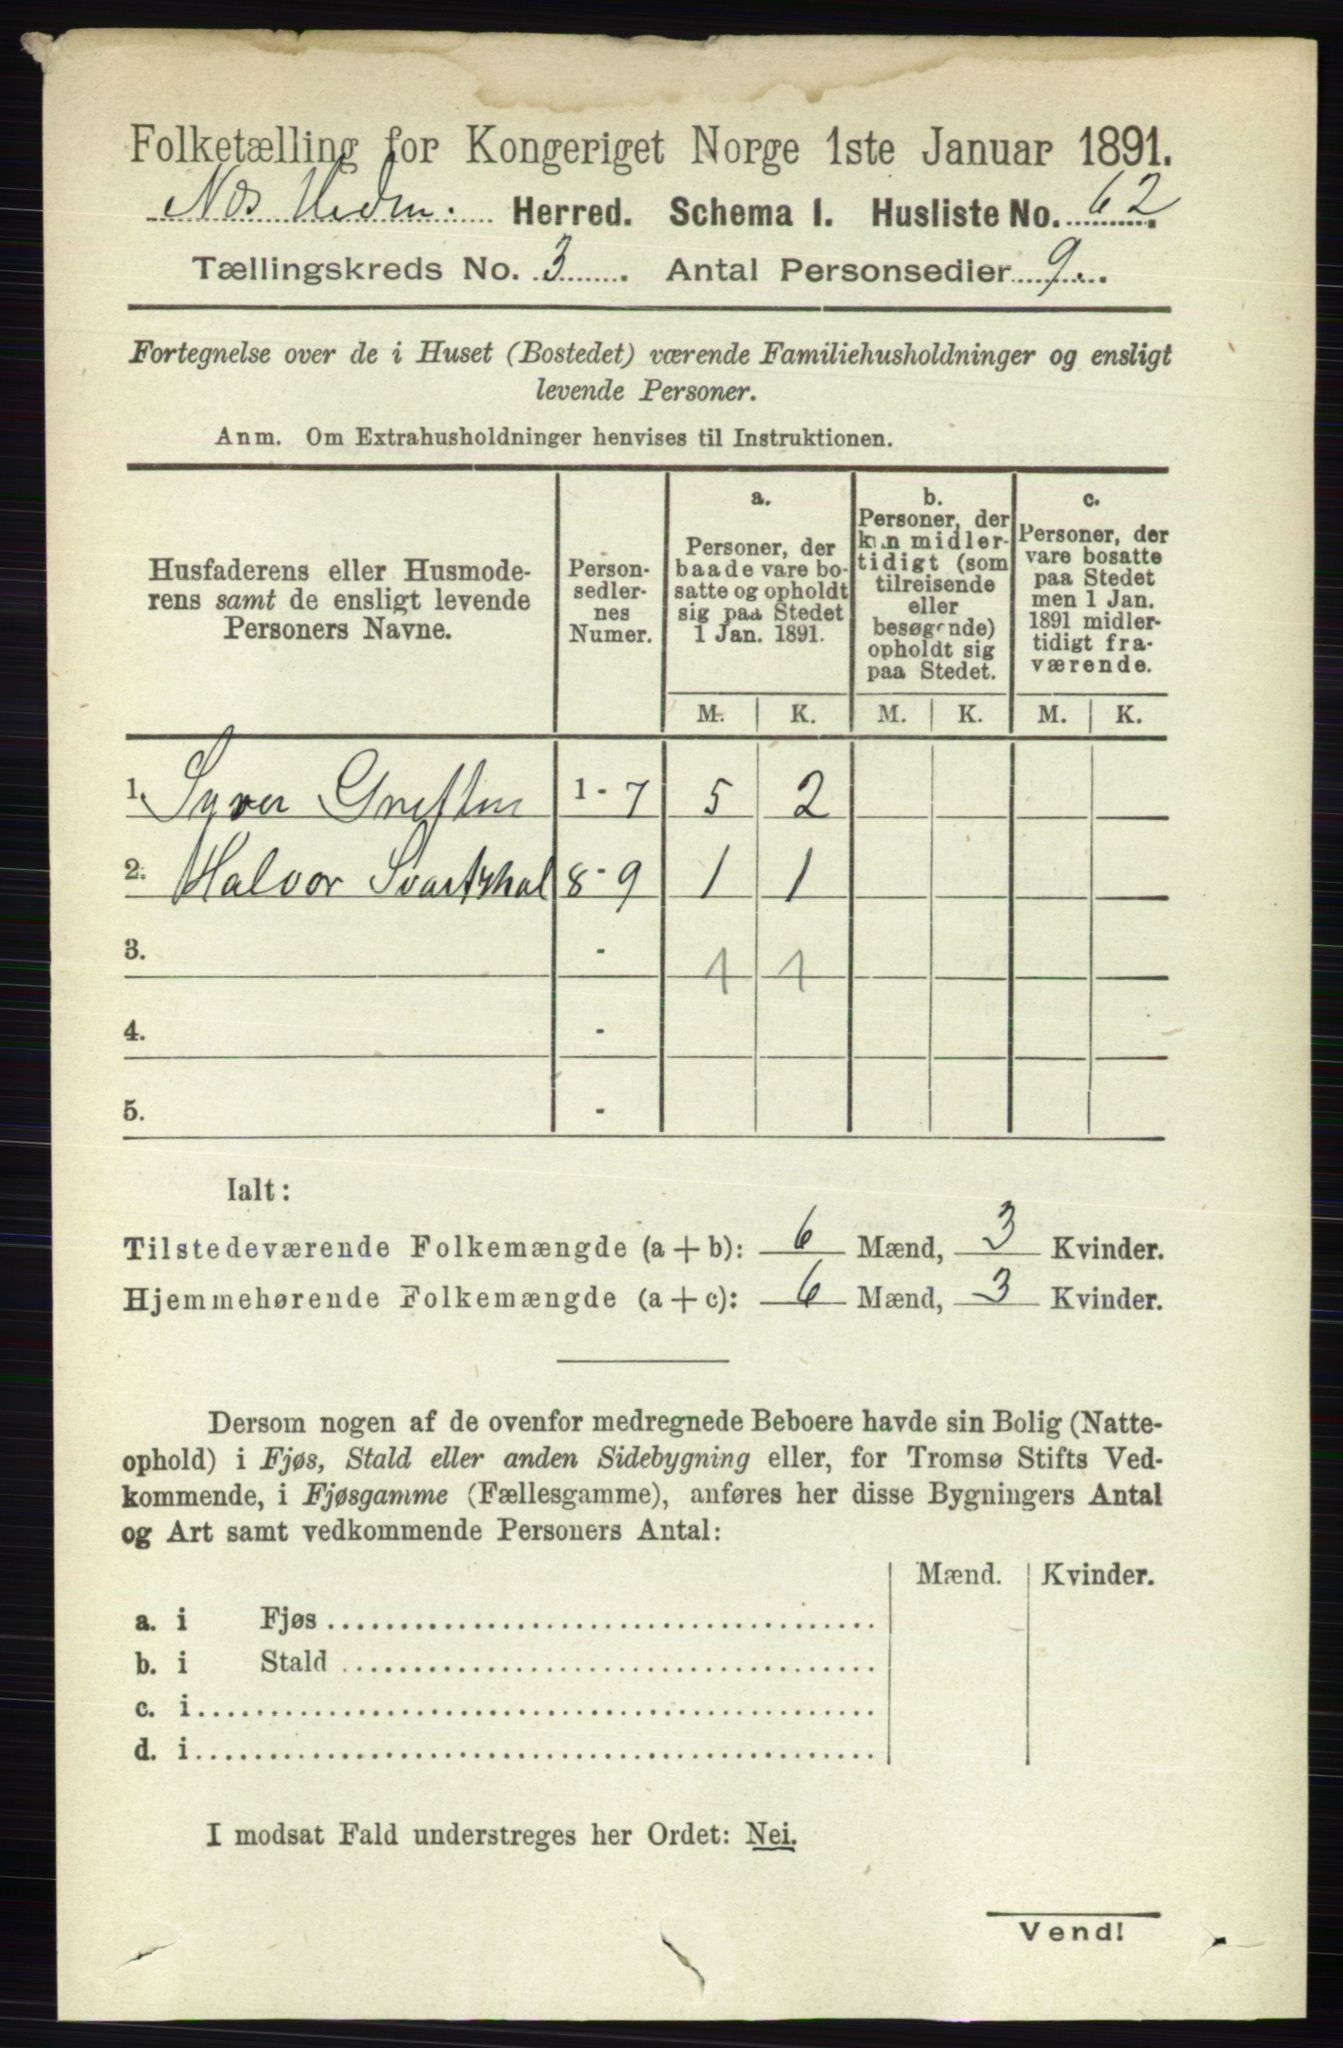 Folketælling for Kongeriget Norge 1ste Januar 1891.
Næs Hedm. Herred. Schema 1. Husliste No. 62
Tællingskreds No. 3. Antal Personsedler 9.
Fortegnelse over de i Huset (Bostedet) værende Familiehusholdninger og ensligt
levende Personer.
Anm. Om Extrahusholdninger henvises til Instruktionen.
Husfaderens eller Husmode-
rens samt de ensligt levende
Personers Navne.
Person-
sedler-
nes
Numer.
a.
Personer, der
baade vare bo-
satte og opholdt
sig paa Stedet
1 Jan. 1891.
b.
Personer, der
kun midler-
tidigt (som
tilreisende
eller
besøgende)
opholdt sig
paa Stedet.
c.
Personer, der
vare bosatte
paa Stedet
men 1 Jan.
1891 midler-
tidigt fra-
værende.
M. K. M. K. M. K.
1. Syver 1 - 7 5 2
2. Halvor 8 - 9 1 1
3. -
4. -
5. -
Ialt:
Tilstedeværende Folkemængde (a + b): 6 Mænd, 3 Kvinder.
Hjemmehørende Folkemængde (a + c): 6 Mænd, 3 Kvinder.
Dersom nogen af de ovenfor medregnede Beboere havde sin Bolig (Natte-
ophold) i Fjøs, Stald eller anden Sidebygning eller, for Tromsø Stifts Ved-
kommende, i Fjøsgamme (Fællesgamme), anføres her disse Bygningers Antal
og Art samt vedkommende Personers Antal:
Mænd. Kvinder.
a. i Fjøs
b. i Stald
c. i
d. i
I modsat Fald understreges her Ordet: Nei.
Vend!